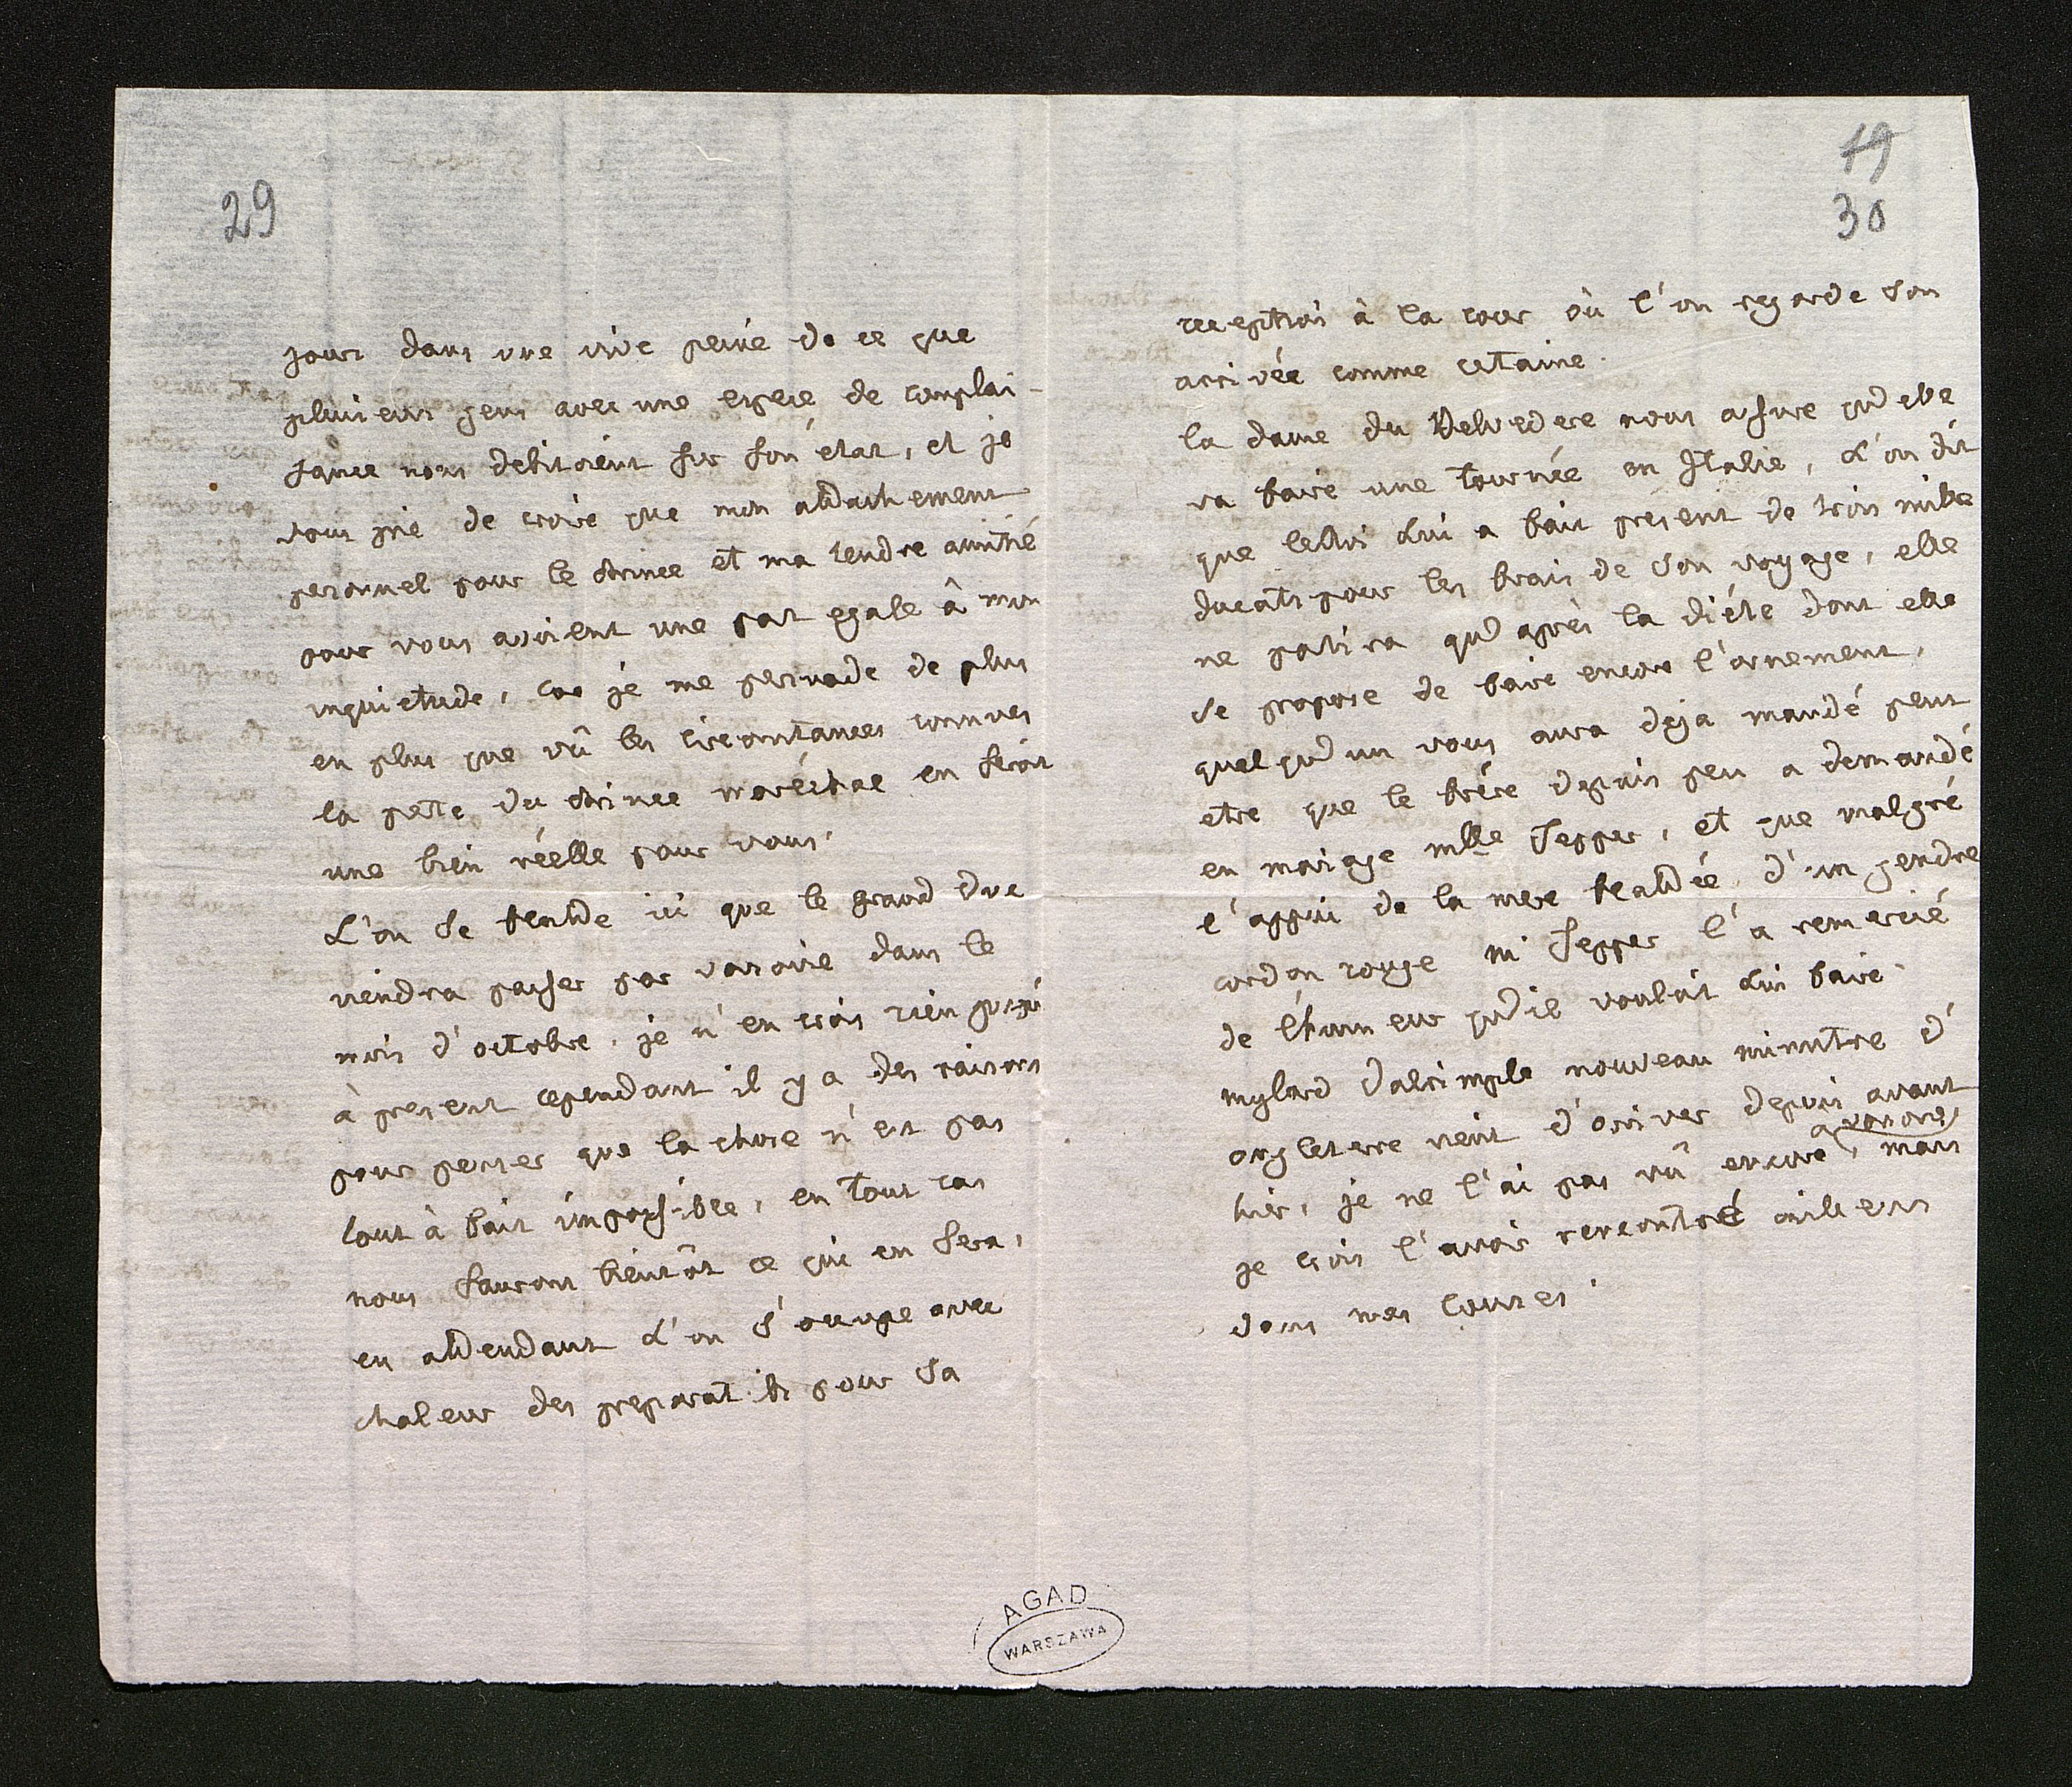 29
jours dans une vive peine de ce que
plusieurs gens avec une espece de complai-
sance nous debitoient sur son état, et je
vous prie de croire que mon attachement
personnel pour le Prince et ma tendre amitié
pour vous avoient une part egale à mon
inquietude, car je me persuade de plus
en plus que vû les circonstances connues
la perte du Prince maréchal en seroit
une bien réelle pour vous.
L'on se flatte ici que le grand Duc
viendra passer par varsovie dans le
mois d'octobre, je n'en crois rien jusqu'
à present cependant il y a des raisons
pour penser que la chose n'est pas
tout à fait impossible, en tout cas
nous saurons bientôt ce qui en sera,
en attendant l'on s'occupe avec
chaleur des preparatifs pour sa
19
30
reception à la cour où l'on regarde son
arrivée comme certaine.
la dame du Belvedere nous assure qu'elle
va faire une tournée en Italie, l'on dit
que le Roi lui a fait present de trois mille
ducats pour les frais de son voyage, elle
ne partira qu'après la diéte dont elle
se propose de faire encore l'ornement,
quelqu'un vous aura deja mandé peut
etre que le frére depuis peu a demandé
en mariage mlle Tepper, et que malgré
l'appui de la mere flattée d'un gendre
cordon rouge mr Tepper l'a remercié
de l'honneur qu'il vouloit lui faire.
mylord Dalrimple nouveau ministre d'
angleterre vient d'arriver depuis avant
hier, je ne l'ai pas vû encore à varsovie, mais
je crois l'avoir rencontré ailleurs
dans mes courses.
AGAD
WARSZAWA